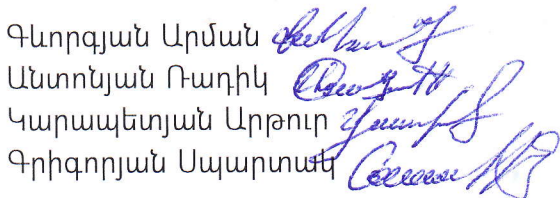 Գևորգյան Արման
Անտոնյան Ռադիկ
Կարապետյան Արթուր
Գրիգորյան Սպարտակ